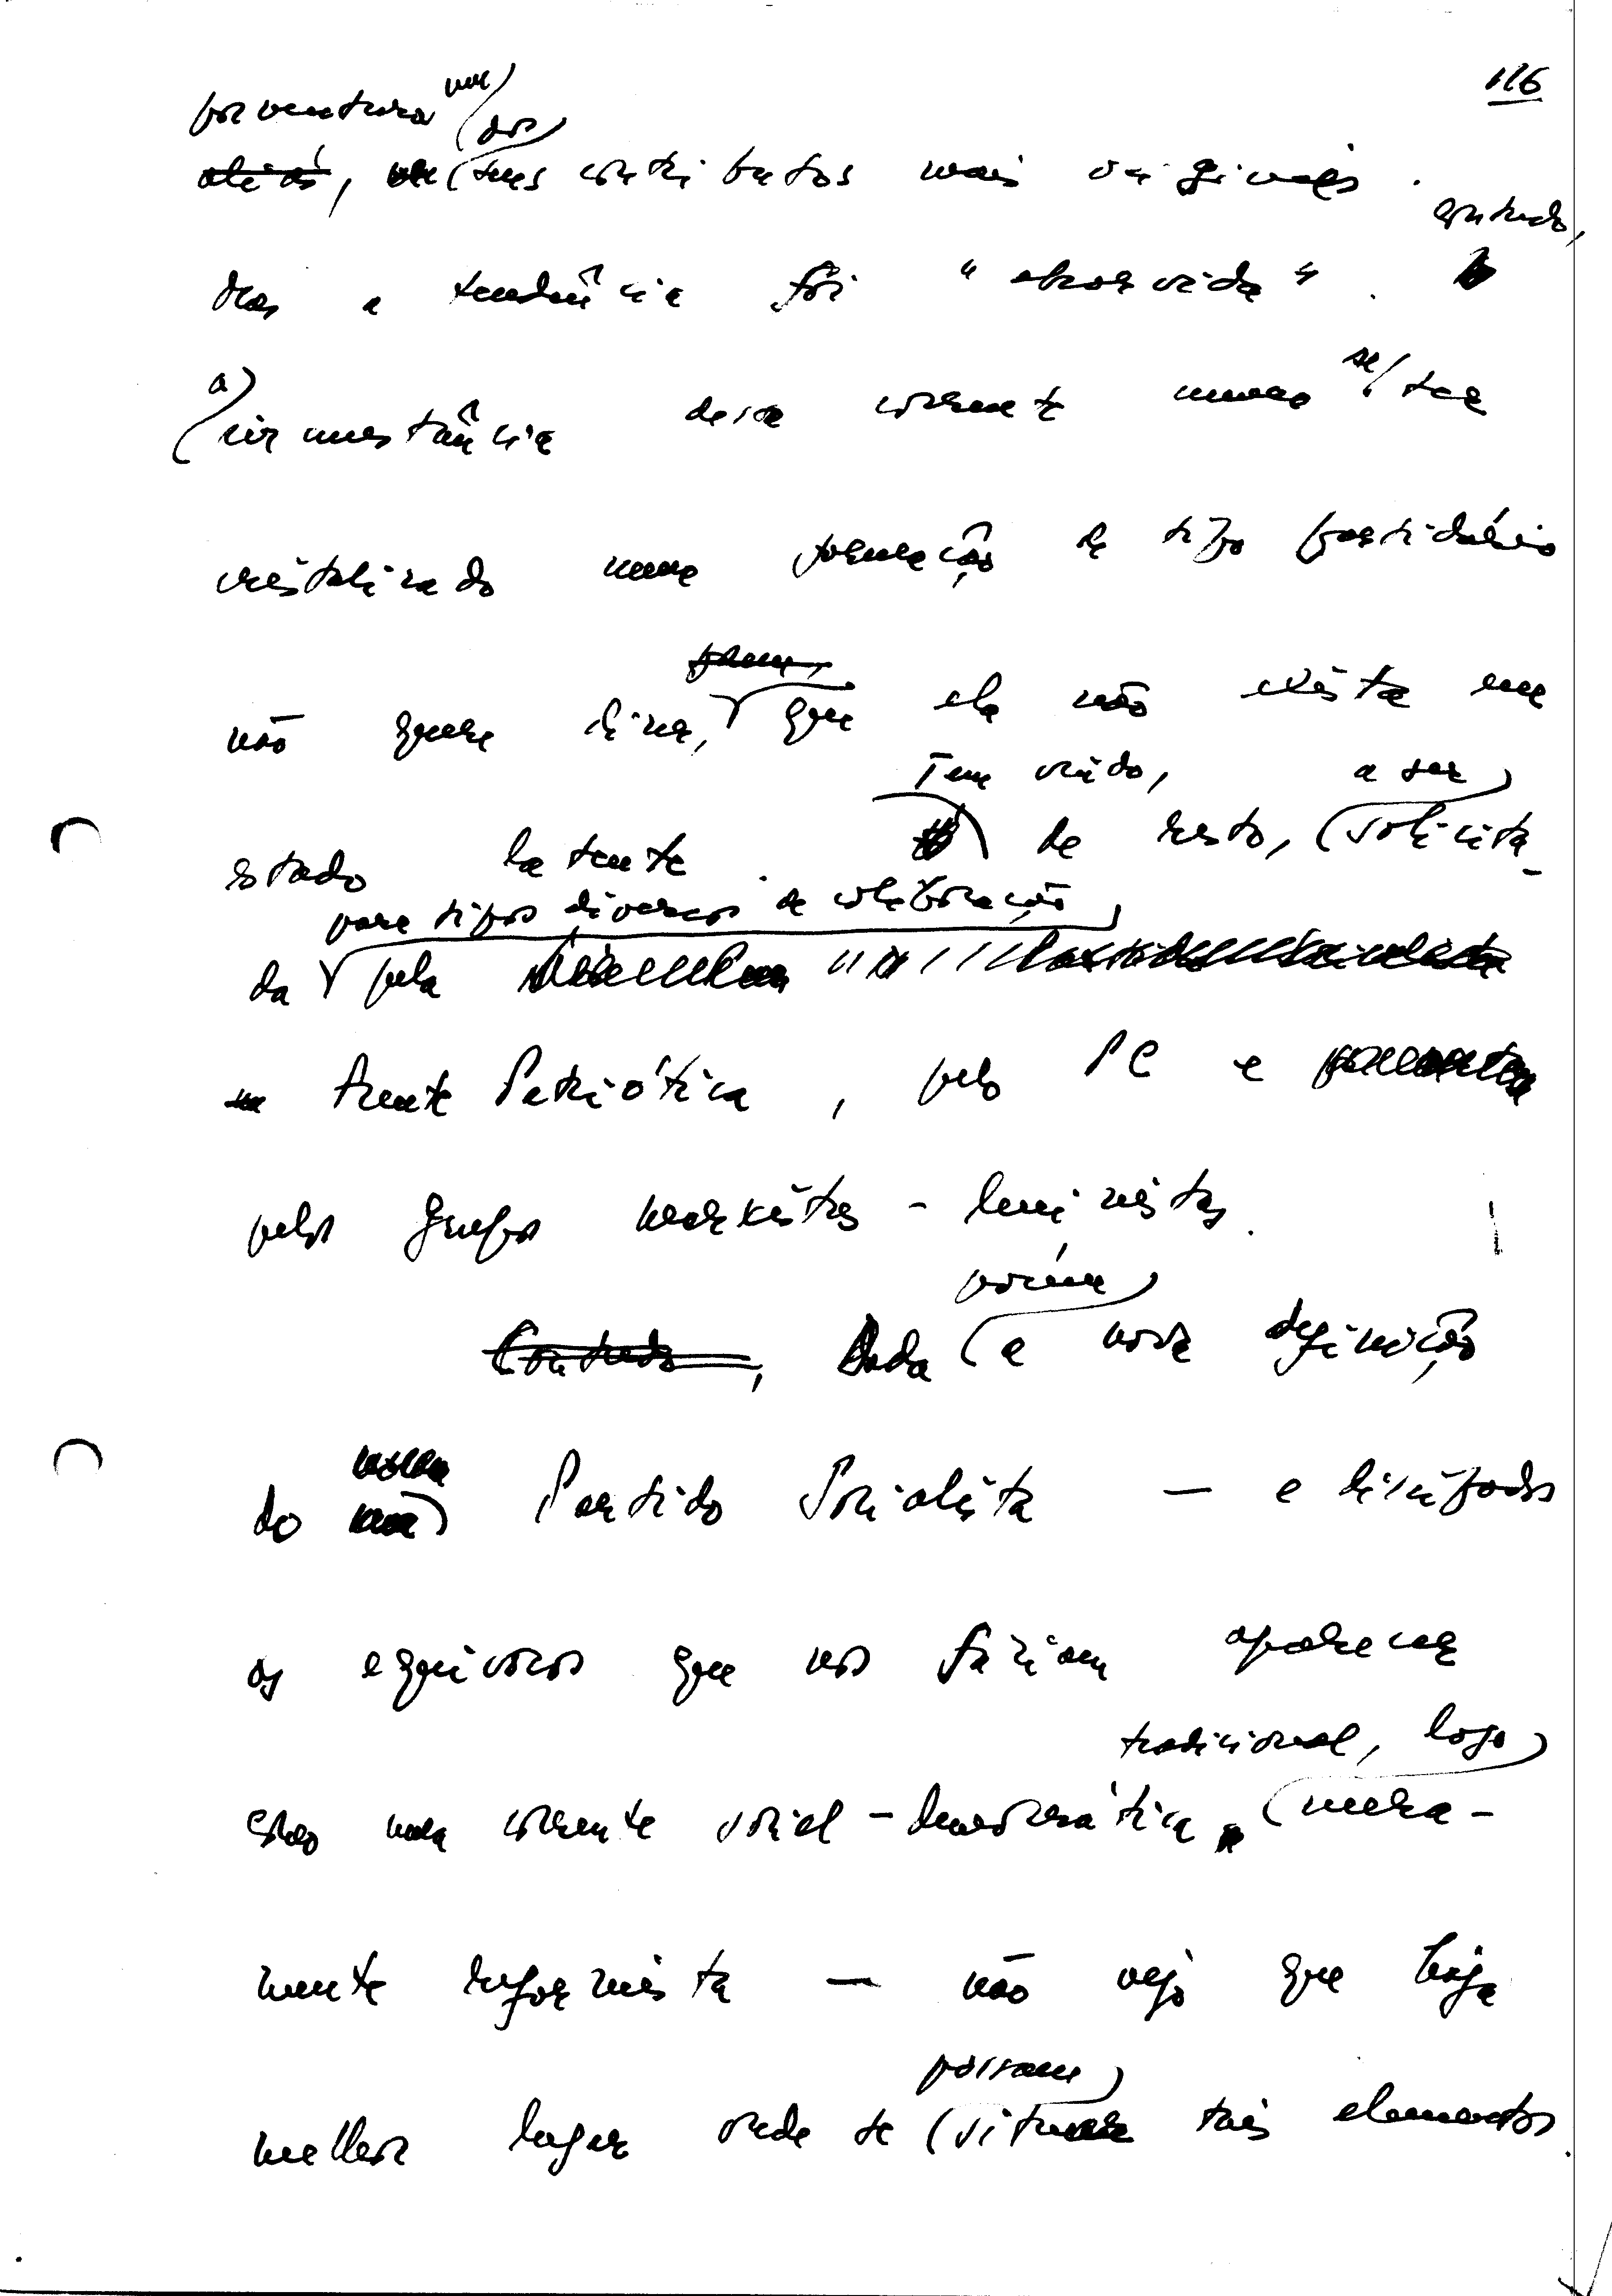 116
porventura um dos
aliás, seus contributos mais originais.
contudo,
Mas a tendência foi "absorvida".
a) circunstância dessa corrente nunca se ter
cristalizado numa formação de tipo partidário
não quere dizer, que ela não exista em
Tem vindo, a ser
estado latente. de resto, solicita-
para tipos diversos de colaboração
da pela
Frente Patriótica, pelo PC e
pelos grupos marxistas-leninistas.
porém
Contudo, Dada a nova definição
do nosso Partido Socialista — e dissipados
os equívocos que nos faziam aparecer
tradicional, logo
como uma corrente social-democrática, mera-
mente reformista — não vejo que haja
possam
melhor lugar onde se situar tais elementos